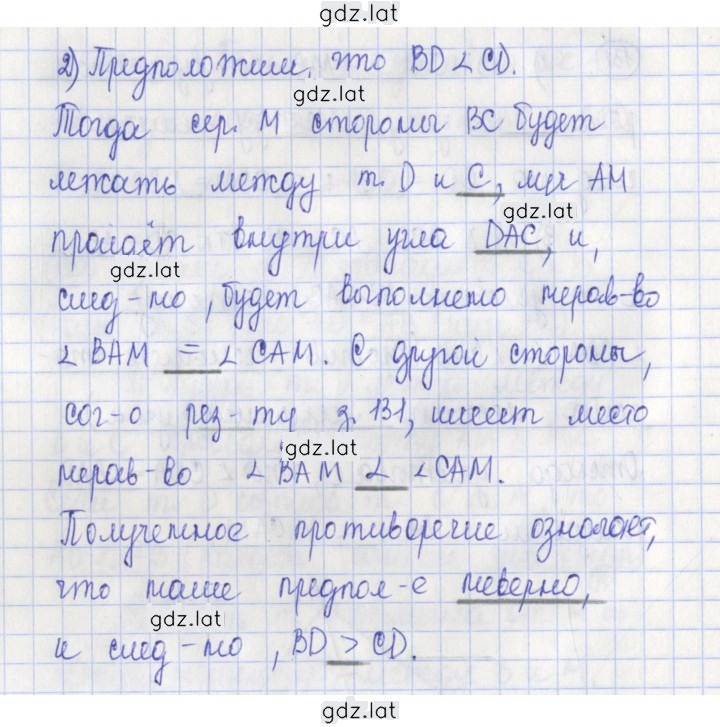 gdz.lat
2) Предположим, что BD < CD.
gdz.lat
Тогда сер. M стороны BC будет
лежать между т. D и C, луч AM
gdz.lat
пройдёт внутри угла DAC, и,
gdz.lat
след-но, будет выполнено нерав-во
∠ BAM = ∠ CAM. С другой стороны,
сог-о рез-ту з. 131, имеет место
gdz.lat
нерав-во ∠ BAM ∠ ∠CAM.
Полученное противоречие означает,
что наше предпол-е неверно,
gdz.lat
и след-но, BD > CD.
gdz.lat